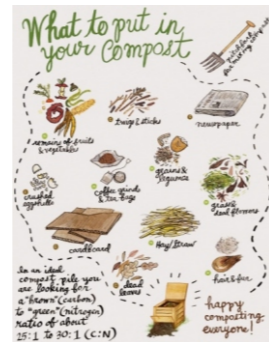 What to put in
your Compost
pitchfork
for mixing compost
remains of fruits
& vegetables
twigs & sticks
newspaper
crushed
eggshells
coffee grinds
& tea bags
grains &
grass &
leaf
cardboard
Hay/Straw
hair & fur
dead
leaves
In an ideal
compost pile you
are looking for
a "brown" (carbon)
to "green" (nitrogen)
ratio of about
25:1 to 30:1 (C:N)
happy
composting,
everyone!